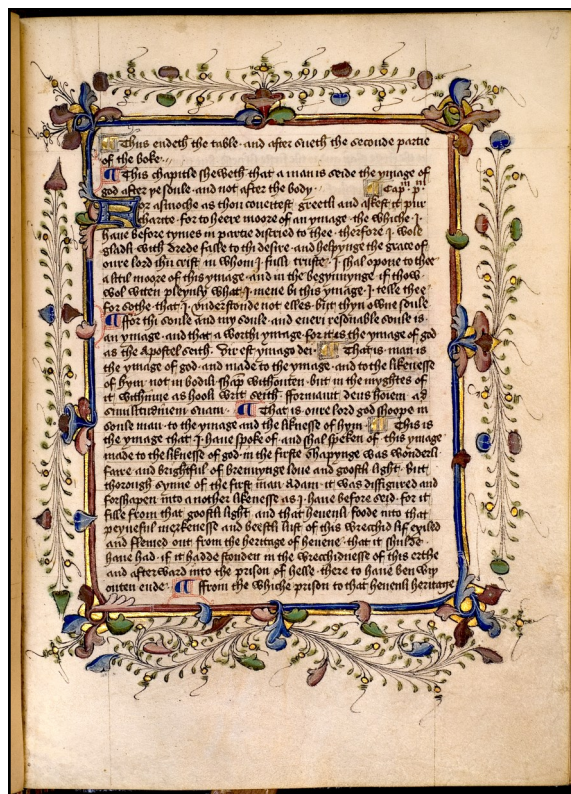 Thus endeth the table · and after sueth the seconde partie
of the boke ·
This chapitle sheweth that a man is seide the ymage of
god after þe soule · and not after the body · Cap · pm
For asmoche as thou coueitest greetli and askest it pur
charite · for to heere moore of an ymage · the whiche · I ·
haue before tymes in partie discried to thee · therfore · I · wole
gladli with drede falle to thi desire · and helpynge the grace of
oure lord ihu crist in whom · I · fulli truste · I · shal opone to thee
a litil moore of this ymage · and in the begynnynge if thow
wol witen pleynli what · I · mene bi this ymage · I · telle thee
for sothe that · I · vnderstonde not elles · but thyn owne soule
ffor thi soule and my soule · and eueri resonable soule is ·
an ymage · and that a worthi ymage · for it is the ymage of god
as the apostel seith · Vir est ymago dei · That is · man is
the ymage of god · and made to the ymage · and to the likenesse
of hym · not in bodili shap withouten · but in the myghtes of
it withinne as hooli writ seith · fformauit deus hoiem · ad
similitudinem suam · That is · oure lord god shoope in
soule man · to the ymage and the liknesse of hym · This is
the ymage that · I · haue spoke of · and shal spoken of this ymage
made to the liknesse of god · in the firste shapynge was wonderli
faire and brightful of brennynge loue and goostli light · but
thorough synne of the first man Adam · it was disfigured and
forshapen into another likenesse as · I · haue before seid · for it
fille from that goostli light · and that heuenli foode into that
peyneful merkenesse and beestli lust of this wrecchid lif exiled
and flemed out from the heritage of heuene · that it shulde
haue had · if it hadde stonden in the wrecchidnesse of this erthe
and afterward into the prison of helle · there to haue ben wiþ
outen ende · ffrom the whiche prison to that heuenli heritage